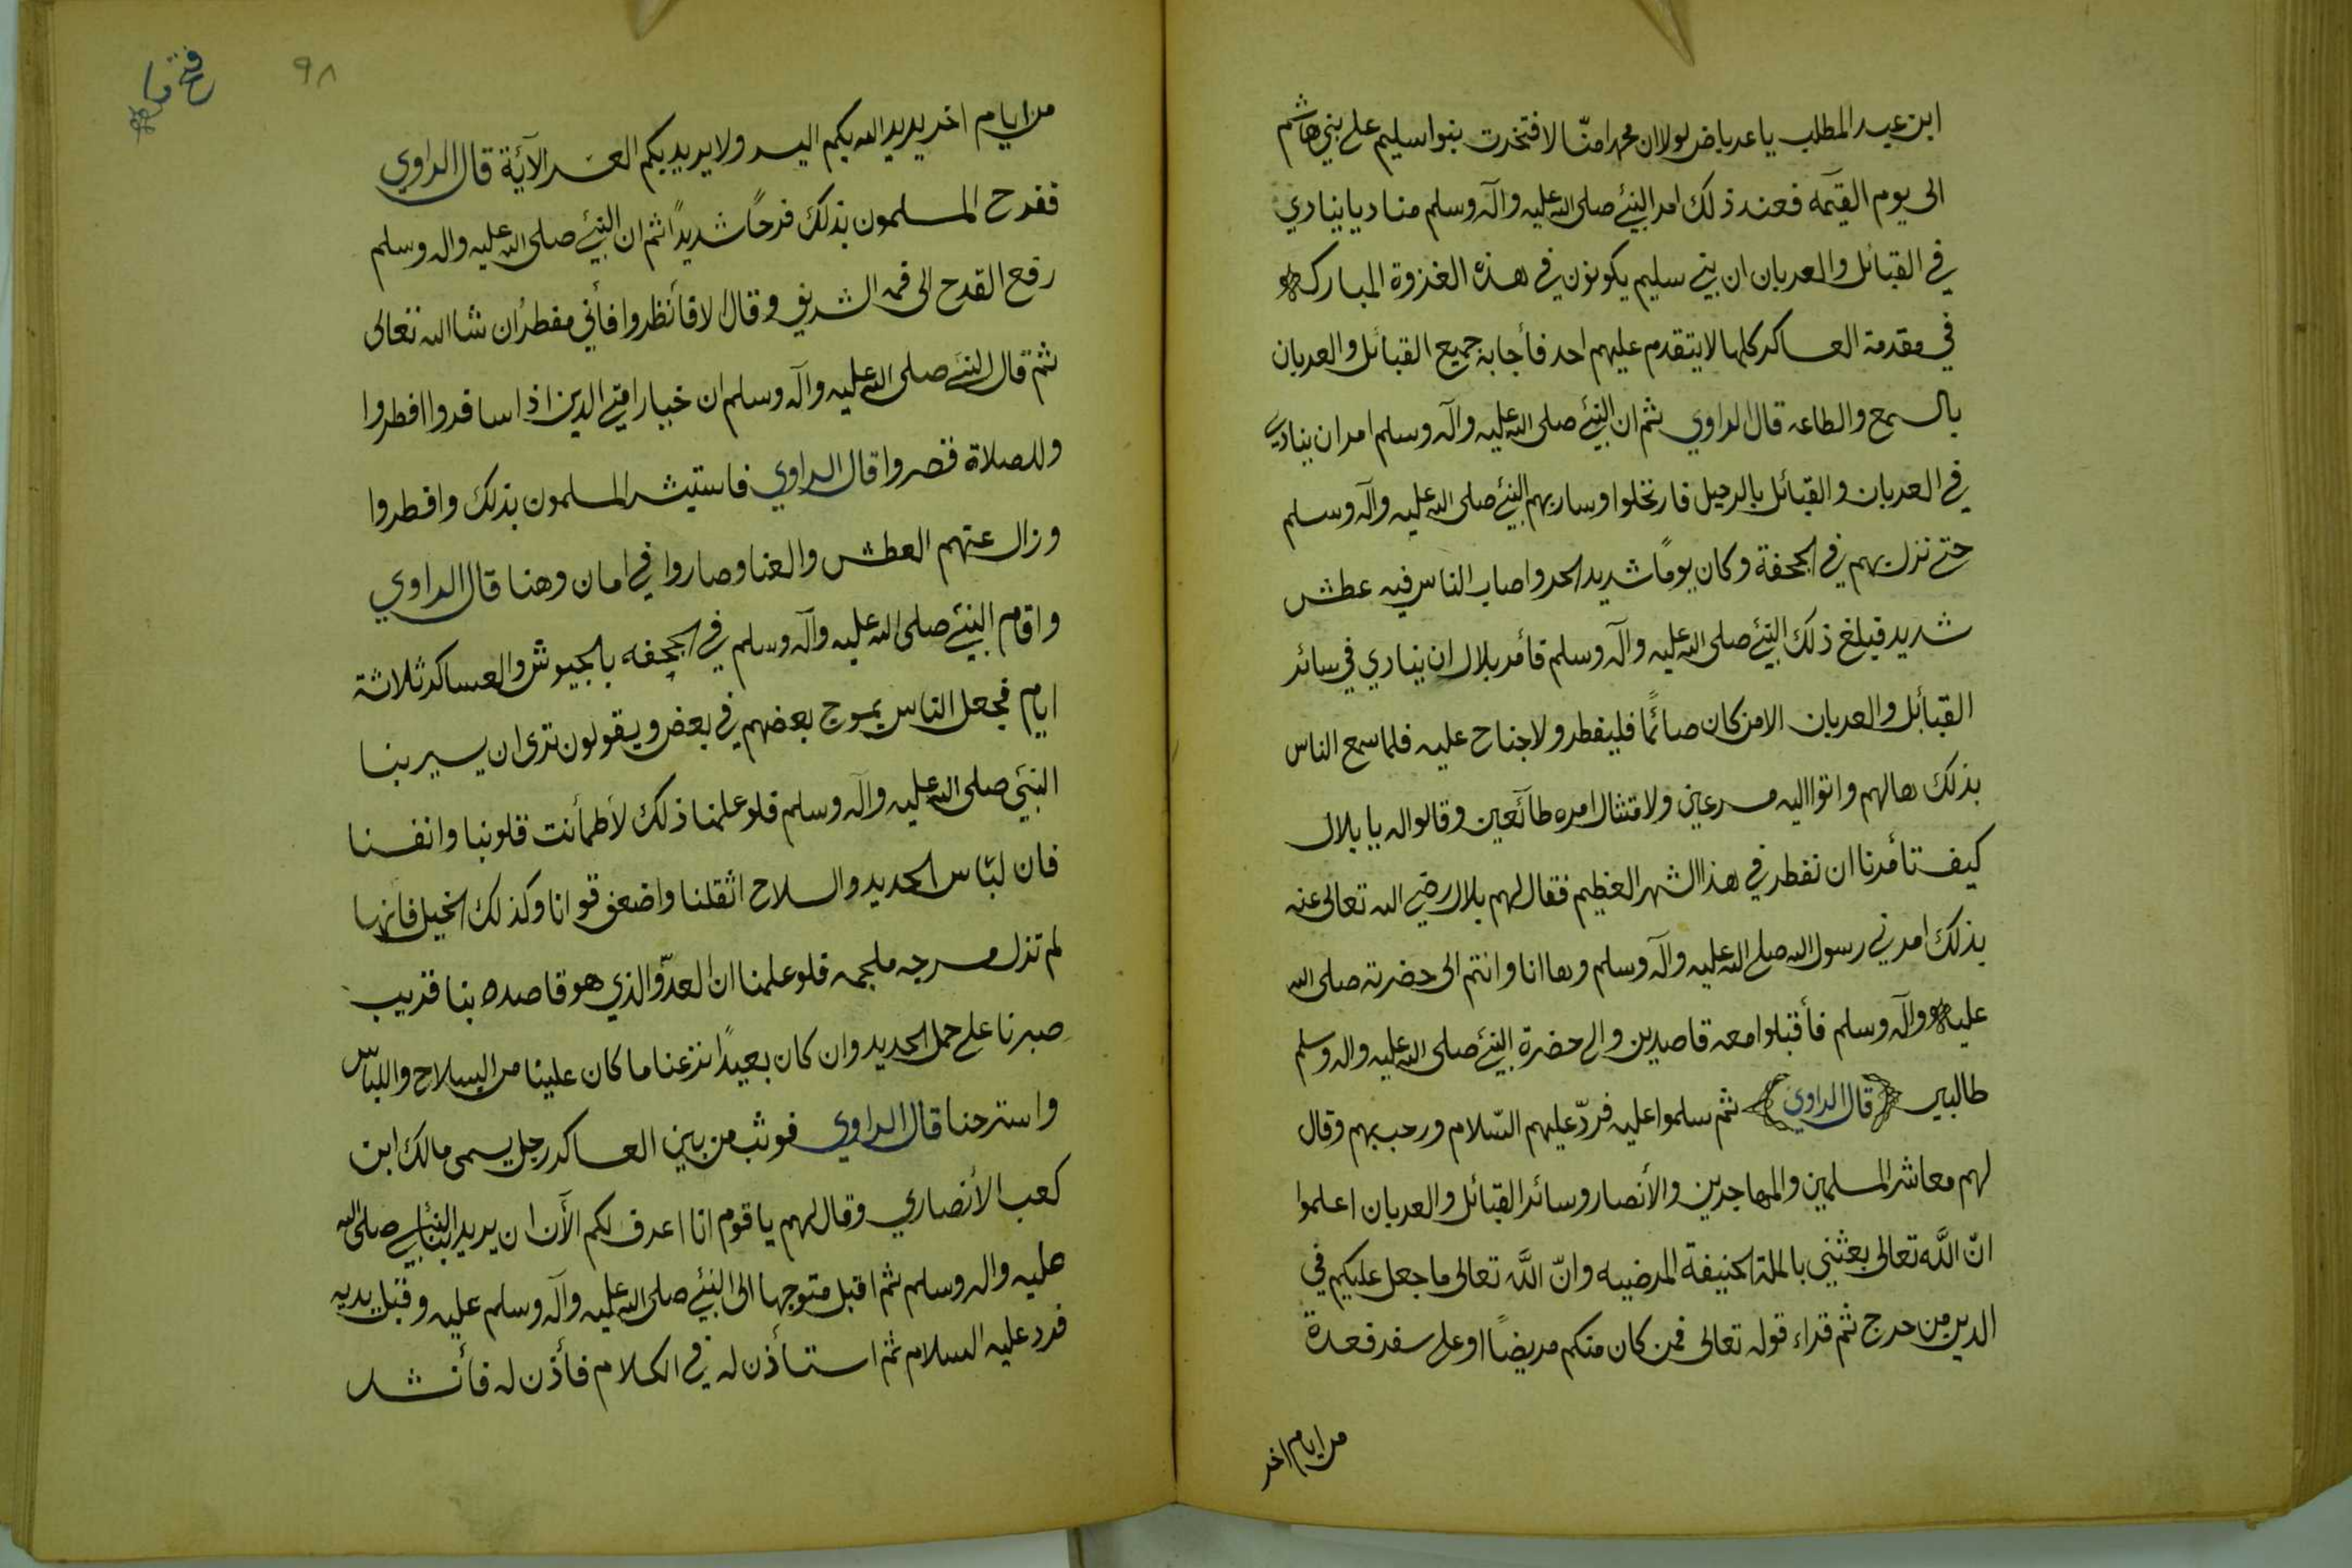 ابن عبد المطلب يا عرباض لولا ان محمد امنّا لافتخرت بنوا سليم على بني هاشم
الى يوم القيٰمه فعند ذلك امر النبيّ صلى الله عليه وآله وسلم مناديا ينادي
في القبائل والعربان ان بني سليم يكونون في هذه الغزوة المباركه
في مقدمة العساكر كلها لا يتقدم عليهم احد فأجابه جميع القبائل والعربان
بالسمع والطاعه قال الراوي ثم ان النبيّ صلى الله عليه وآله وسلم امر ان ينادي
في العربان والقبائل بالرحيل فارتحلوا وسار بهم النبيّ صلى الله عليه وآله وسلم
حتى نزل بهم في الجحفة وكان يومًا شديد الحر واصاب الناس فيه عطش
شديد فبلغ ذلك النبيّ صلى الله عليه وآله وسلم فأمر بلال ان ينادي في سائر
القبائل والعربان الا من كان صائمًا فليفطر ولا جناح عليه فلما سمع الناس
بذلك هالهم واتوا اليه مسرعين ولامتثال امره طائعين وقالوا له يا بلال
كيف تأمرنا ان نفطر في هذا الشهر العظيم فقال لهم بلال رضي الله تعالى عنه
بذلك امرني رسول الله صلى الله عليه وآله وسلم وها انا وانتم الى حضرته صلى الله
عليه وآله وسلم فأقبلوا معه قاصدين والى حضرة النبيّ صلى الله عليه واله وسلم
طالبين قال الراوي ثم سلموا عليه فردّ عليهم السّلام ورحب بهم وقال
لهم معاشر المسلمين والمهاجرين والأنصار وسائر القبائل والعربان اعلموا
انّ اللّه تعالى بعثني بالملة الحنيفة المرضيه وانّ اللّه تعالى ما جعل عليكم في
الدين من حرج ثم قراء قوله تعالى فمن كان منكم مريضًا او على سفر فعدة
من ايام اخر
٩٨
من ايام اخر يريد الله بكم اليسر ولا يريد بكم العسر الآية قال الراوي
ففرح المسلمون بذلك فرحًا شديدًا ثم ان النبيّ صلى الله عليه واله وسلم
رفع القدح الى فمه الشريف وقال الا فأنظروا فأني مفطرُ ان شا الله تعالى
ثم قال النبيّ صلى الله عليه وآله وسلم ان خيار امتي الذين اذا سافروا افطروا
وللصلاة قصروا قال الراوي فاستبشر المسلمون بذلك وافطروا
وزال عنهم العطش والعنا وصاروا في امان وهنا قال الراوي
واقام النبيّ صلى الله عليه وآله وسلم في الجحفه بالجيوش والعساكر ثلاثة
ايام فجعل الناس يموج بعضهم في بعض ويقولون ترى ان يسير بنا
النبيّ صلى الله عليه وآله وسلم فلو علمنا ذلك لأطمأنت قلوبنا وانفسنا
فان لبّاس الحديد والسلاح اثقلنا واضعف قوانا وكذلك الخيل فانها
لم تزل مسرجه ملجمه فلو علمنا ان العدّو الذي هو قاصده بنا قريب
صبرنا على حمل الحديد وان كان بعيدًا نزعنا ما كان علينا من السلاح واللباس
واسترحنا قال الراوي فوثب من بين العساكر رجل يسمى مالك ابن
كعب الأنصاري وقال لهم يا قوم انا اعرف لكم الأن اين يريد النبي صلى الله
عليه واله وسلم ثم اقبل متوجها الى النبيّ صلى الله عليه وآله وسلم عليه وقبل يديه
فرد عليه السلام ثم استأذن له في الكلام فأذن له فأنشد